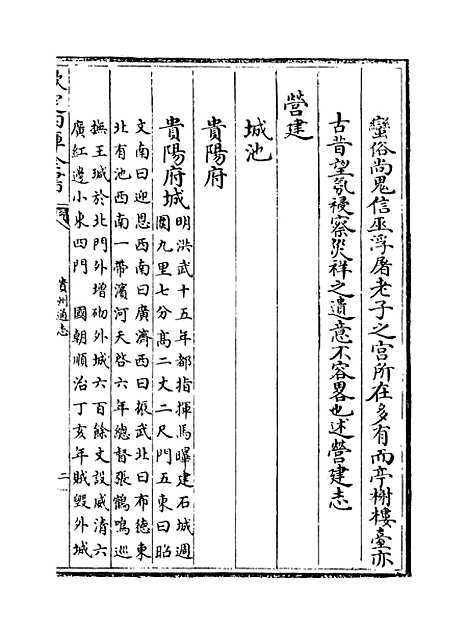 蠻俗尚鬼信巫浮屠老子之宫所在多有而亭榭樓臺亦
古昔望氛祲察災祥之遺意不容畧也述營建志
營建
城池
貴陽府
貴陽府城明洪武十五年都指揮馬曄建石城週
圍九里七分高二丈二尺門五東曰昭
文南曰迎恩西南曰廣濟西曰振武北曰布德東
北有池西南一帶濱河天啓六年總督張鶴鳴巡
撫王瑊於北門外增砌外城六百餘丈設威清六
廣紅邊小東四門 國朝順治丁亥年賊毀外城
欽定四庫全書
貴州通志
二